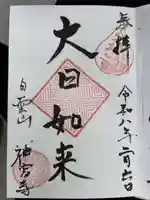 奉拝
令和八年一月六日
大日如来
白雲山
神宮寺